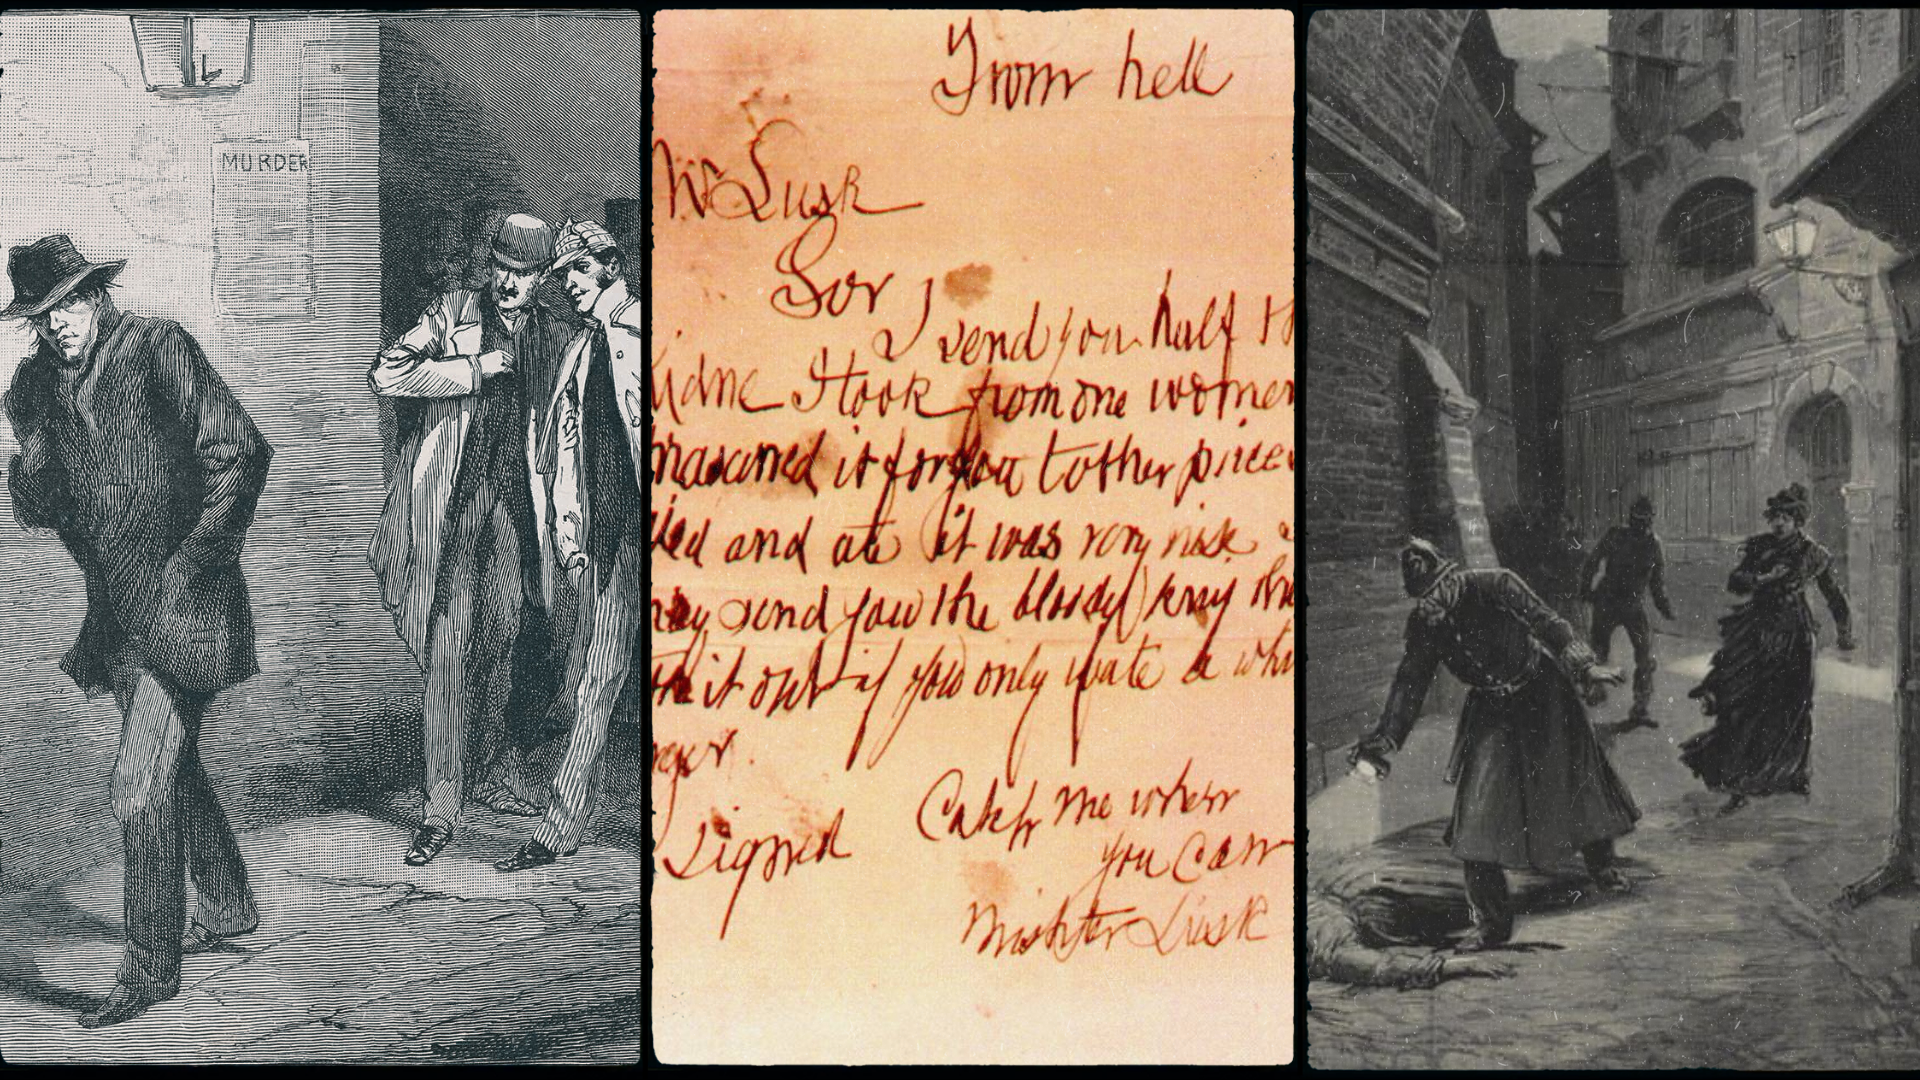 MURDER
From hell
Mr Lusk
Sor
I send you half th
Kidne I took from one women
prasarved it for you tother piece
ied and ate it was very nise
may send you the bloody knif tha
it out if you only wate a whi
nger
signed
Catch me when
you can
Mishter Lusk